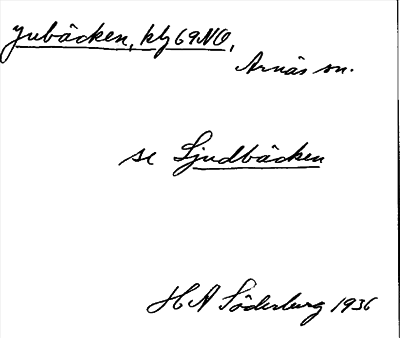 Jubäcken, kbl 69NO,
Arnäs sn.
se Ljudbäcken
H A Söderburg 1936